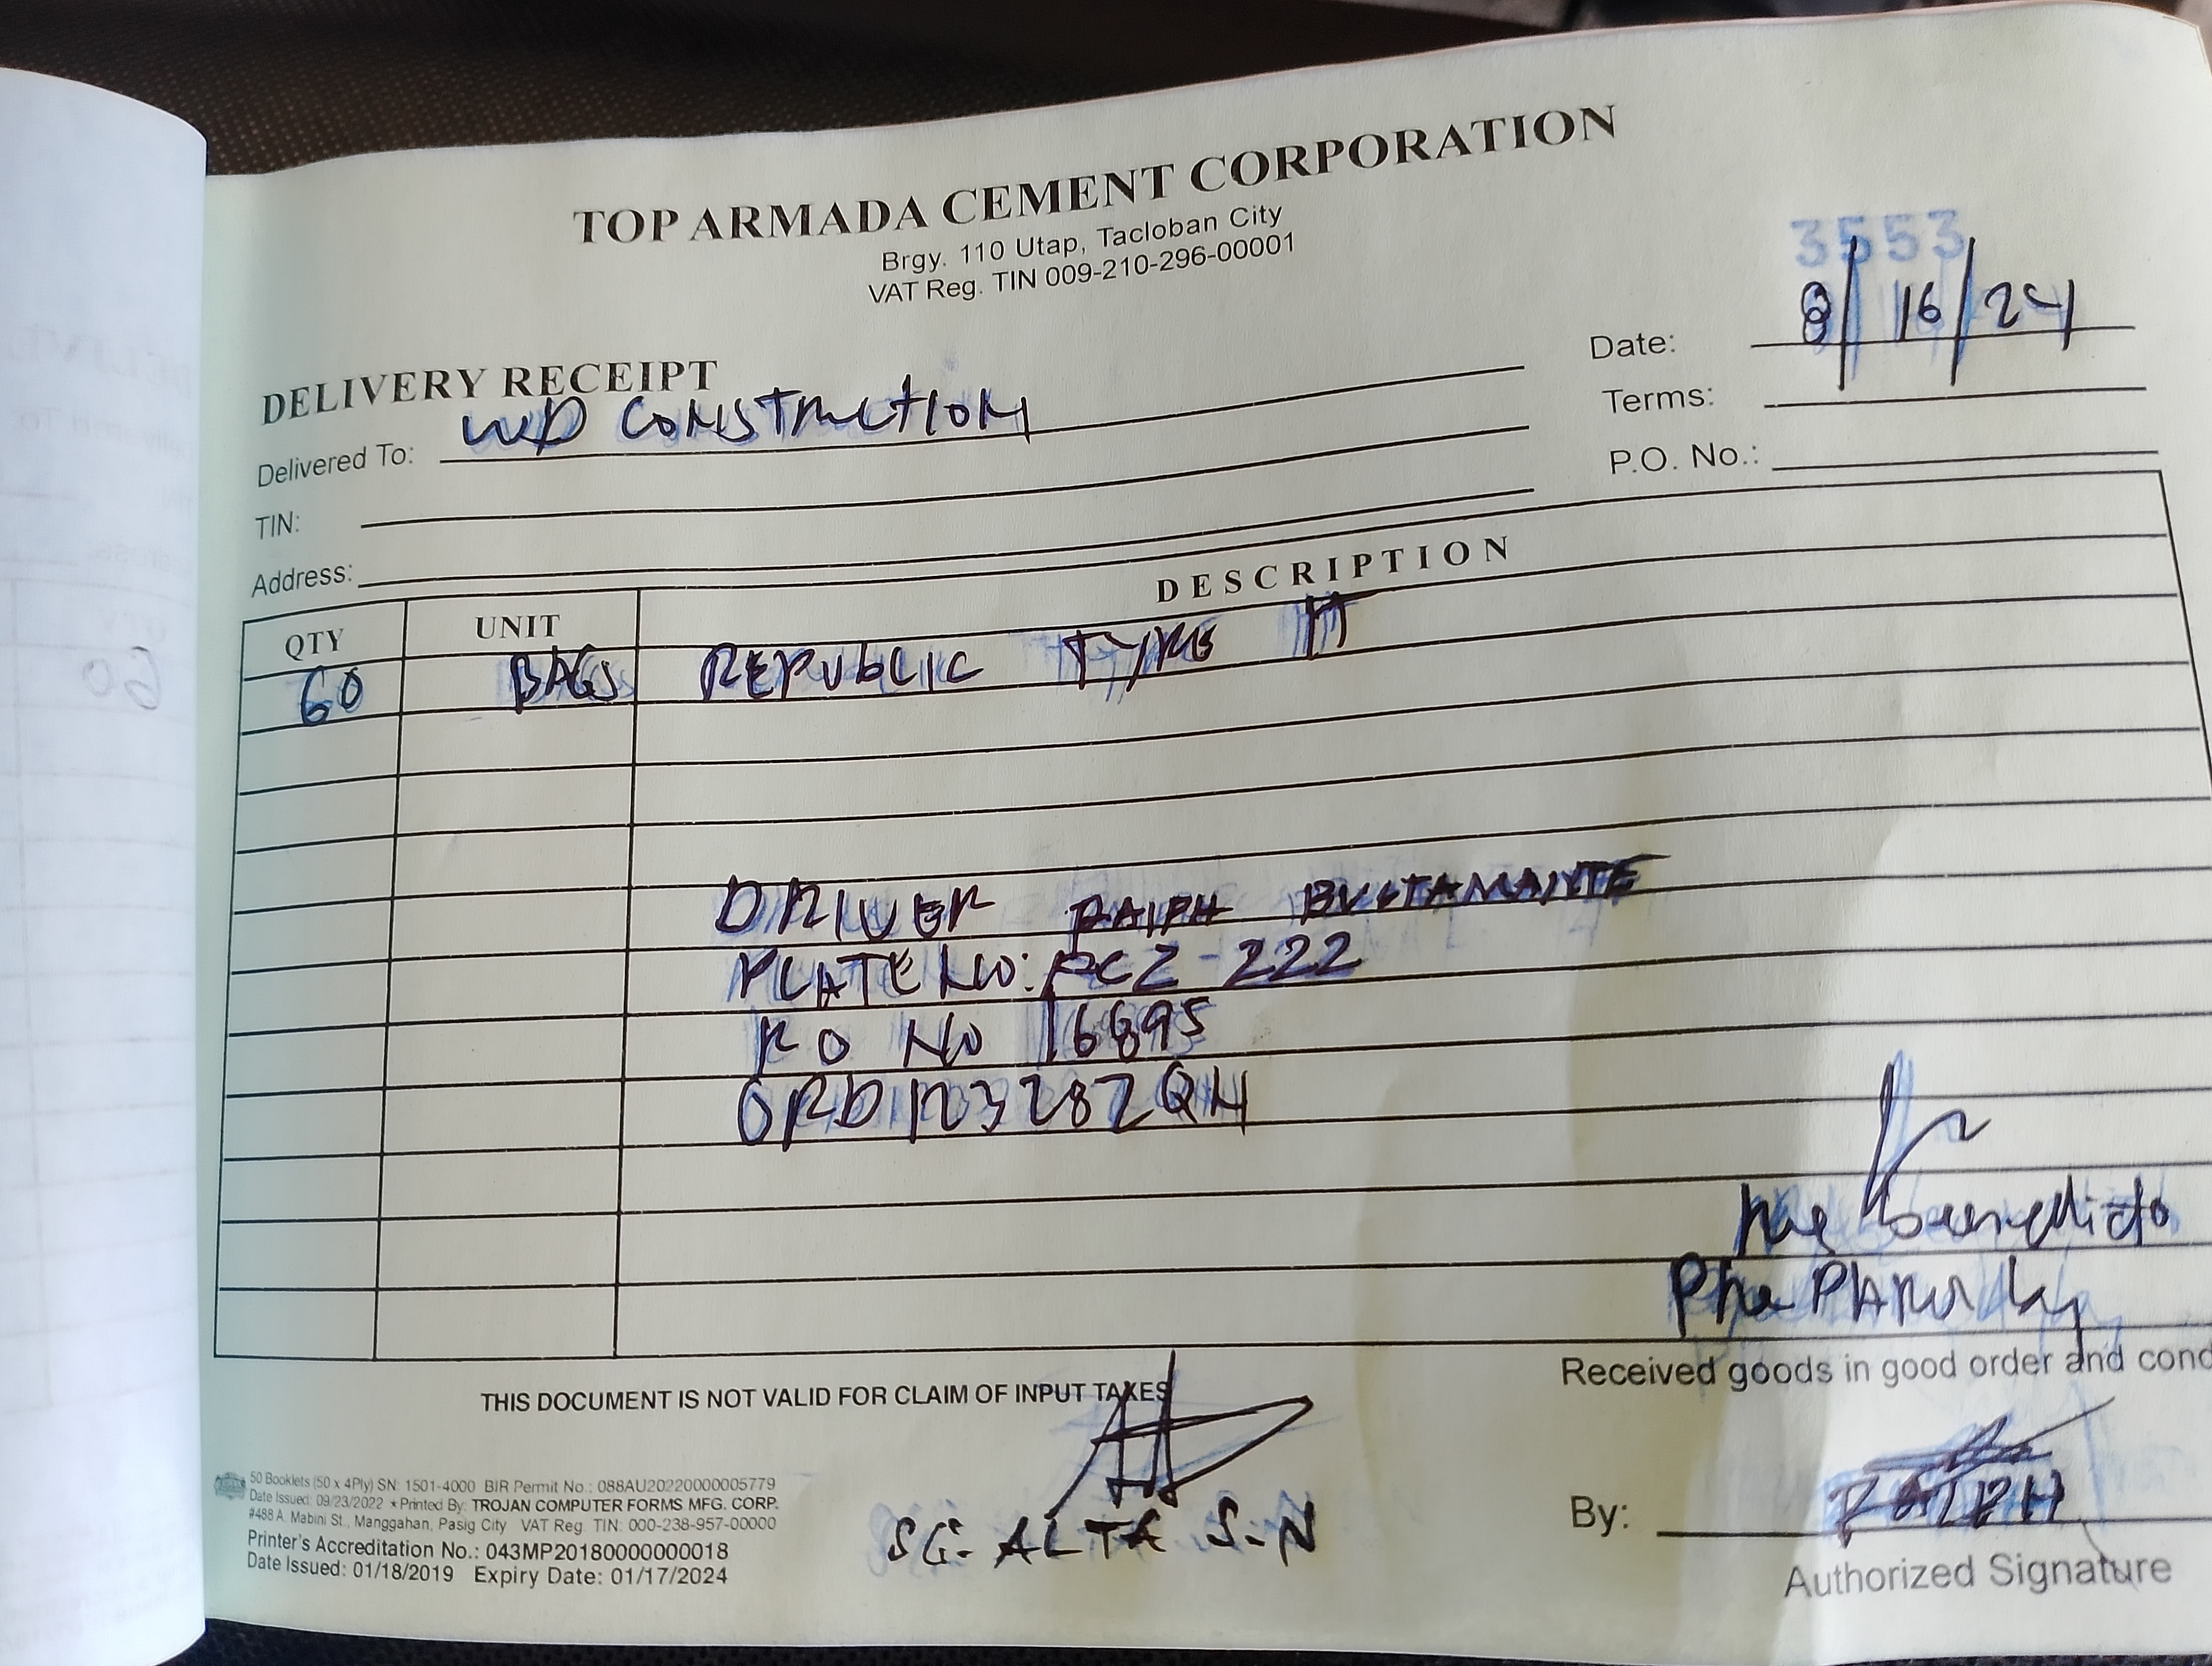 TOP ARMADA CEMENT CORPORATION
Brgy. 110 Utap, Tacloban City
VAT Reg. TIN 009-210-296-00001
3553
DELIVERY RECEIPT
Date: 8/16/24
Delivered To: WD CONSTRUCTION
Terms:
TIN:
P.O. No.:
Address:
QTY UNIT DESCRIPTION
60 BAGS REPUBLIC TYPE
DRIVER RALPH BUSTAMANTE
PLATE NO: 222
PO NO 16695
Benedicto
THIS DOCUMENT IS NOT VALID FOR CLAIM OF INPUT TAXES
Received goods in good order and cond
50 Booklets (50 x 4Ply) SN: 1501-4000 BIR Permit No.: 088AU20220000005779
Date Issued: 09/23/2022 ★ Printed By: TROJAN COMPUTER FORMS MFG. CORP.
#488 A. Mabini St., Manggahan, Pasig City VAT Reg. TIN: 000-238-957-00000
Printer's Accreditation No.: 043MP20180000000018
Date Issued: 01/18/2019 Expiry Date: 01/17/2024
SG. ALTA S.N
By: RALPH
Authorized Signature
60